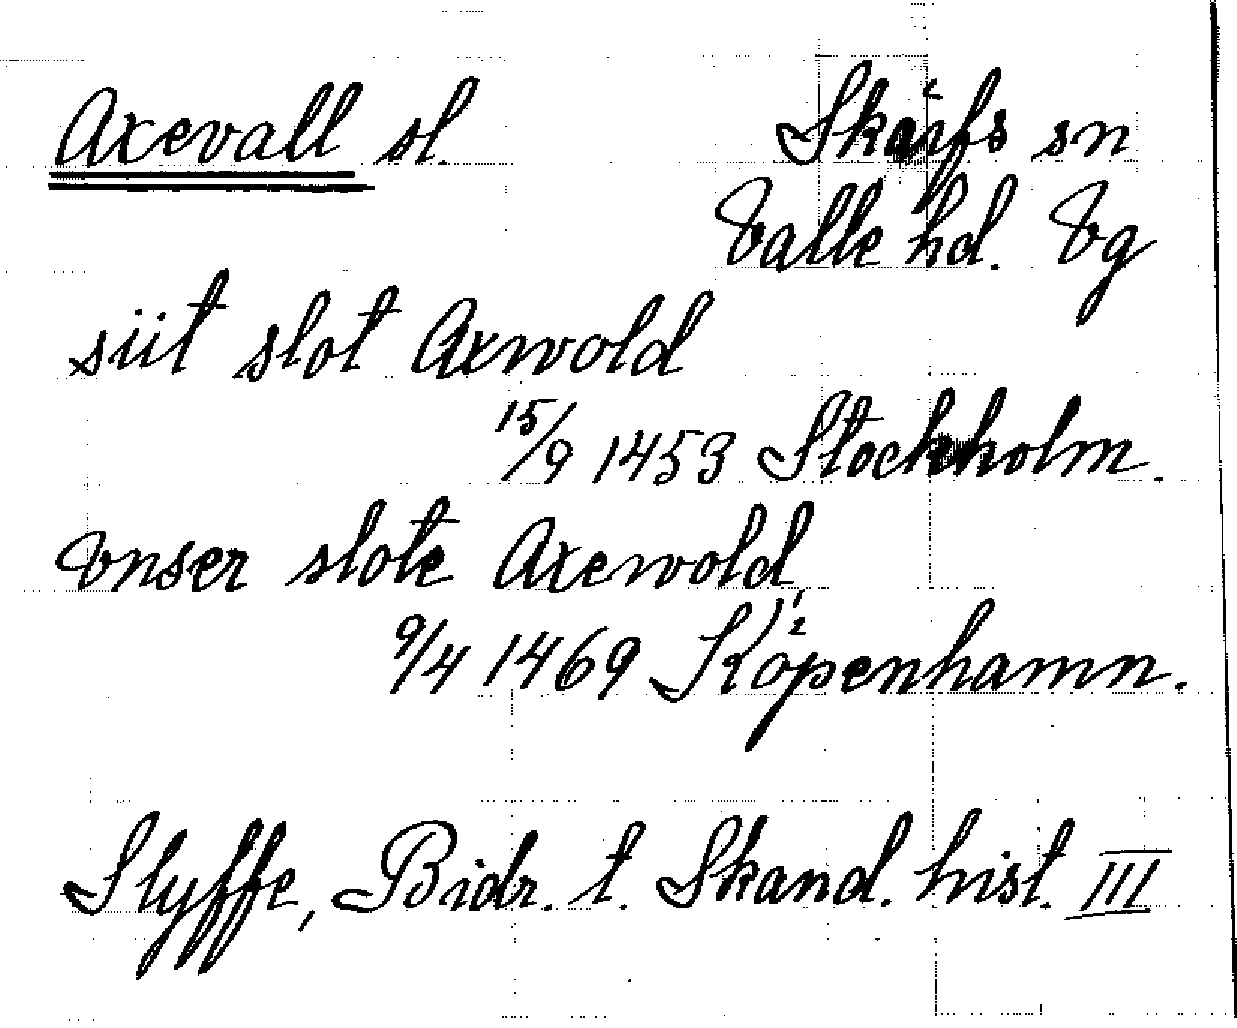 Axevall sl. Skärfs sn
Valle hd. Vg
siit slot Axwold
15/9 1453 Stockholm.
Vnser slote Axewold
9/4 1469 Köpenhamn.
Styffe, Bidr. t. Skand. hist. III